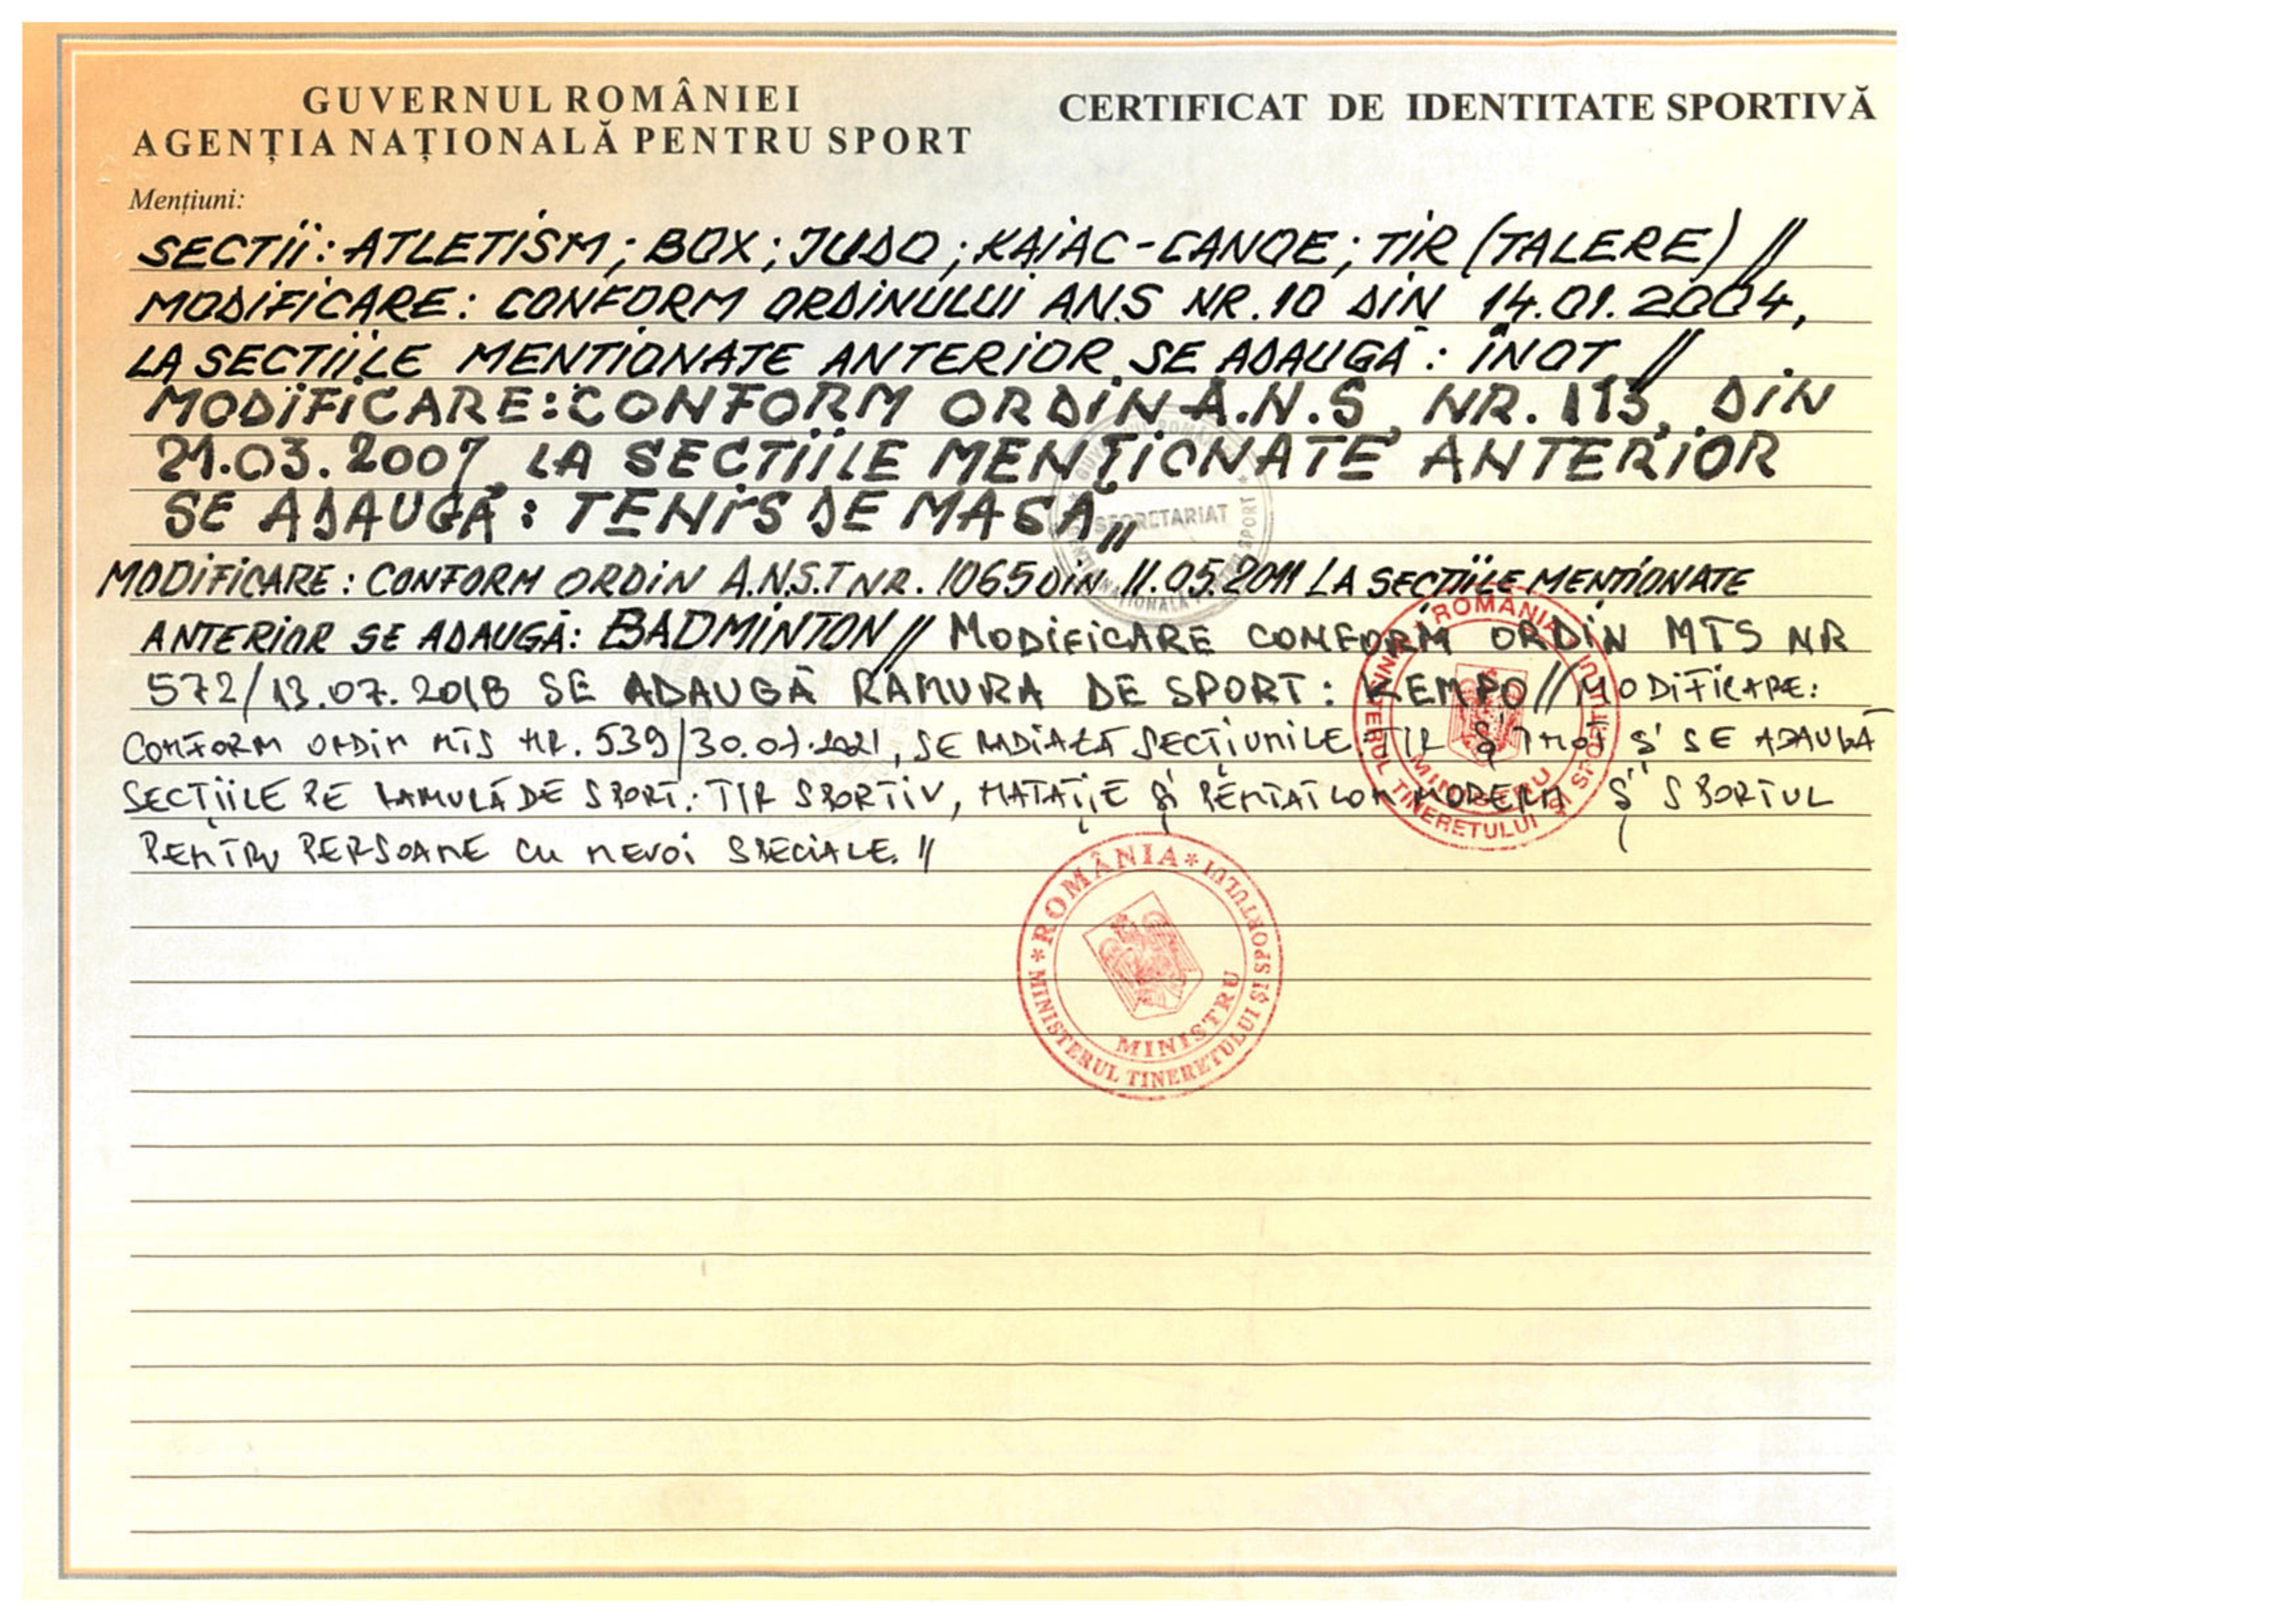 GUVERNUL ROMÂNIEI
AGENȚIA NAȚIONALĂ PENTRU SPORT
CERTIFICAT DE IDENTITATE SPORTIVĂ
Mențiuni:
SECTII: ATLETISM; BOX; JUDO; KAIAC-CANOE; TIR (TALERE) //
MODIFICARE: CONFORM ORDINULUI A.N.S NR. 10 DIN 14.01.2004,
LA SECTIILE MENTIONATE ANTERIOR SE ADAUGĂ: ÎNOT //
MODIFICARE: CONFORM ORDIN A.N.S NR. 113, DIN
21.03.2007, LA SECTIILE MENȚIONATE ANTERIOR
SE ADAUGĂ: TENIS DE MASĂ //
MODIFICARE: CONFORM ORDIN A.N.S.T NR. 1065 DIN 11.05.2011 LA SECTIILE MENTIONATE
ANTERIOR SE ADAUGĂ: BADMINTON // MODIFICARE CONFORM ORDIN MTS NR
572/13.07.2018 SE ADAUGĂ RAMURA DE SPORT: KEMPO // MODIFICARE:
CONFORM ORDIN MTS NR. 539/30.07.2021, SE RADIAZĂ SECȚIUNILE TIR ȘI ÎNOT ȘI SE ADAUGĂ
SECȚIILE PE RAMURĂ DE SPORT: TIR SPORTIV, NATAȚIE ȘI PENTATLON MODERN ȘI SPORTUL
PENTRU PERSOANE CU NEVOI SPECIALE. //
SECRETARIAT
* ROMÂNIA * MINISTERUL TINERETULUI ȘI SPORTULUI
MINISTRU
* ROMÂNIA * MINISTERUL TINERETULUI ȘI SPORTULUI
MINISTRU